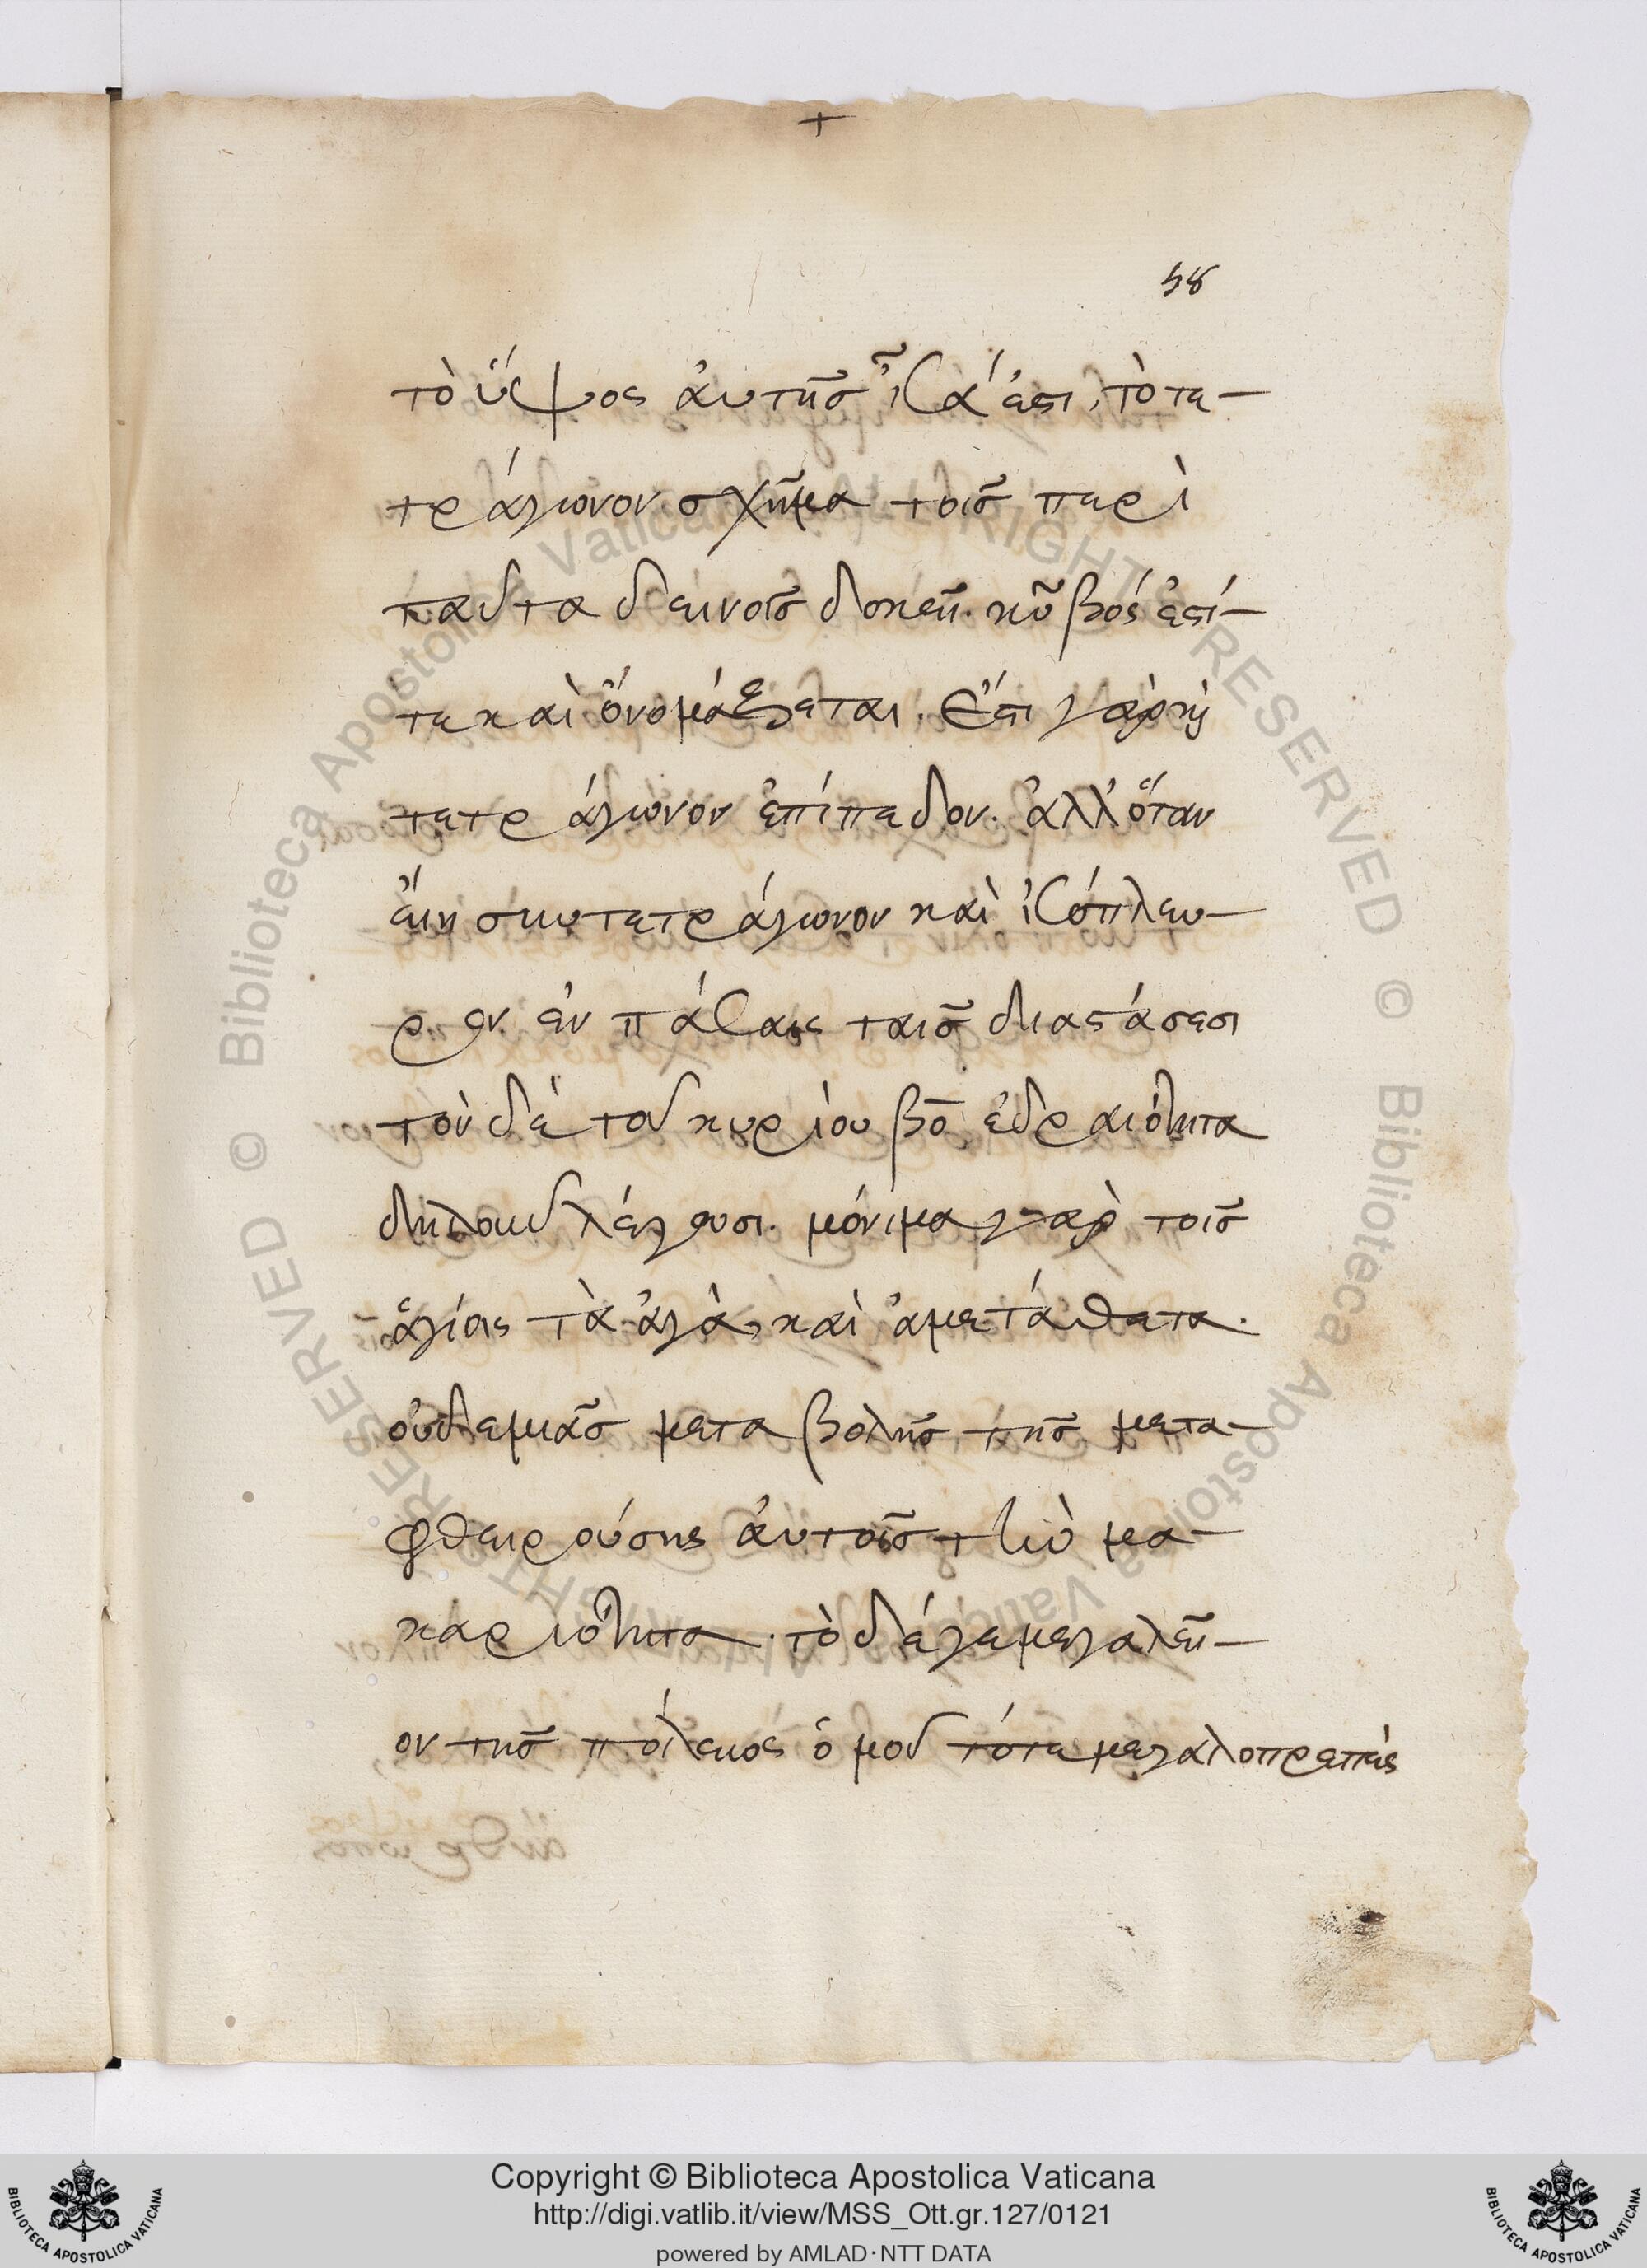 +
58
τὸ ὕψος ἀυτῆς ἶσά ἐστι, τὸ τε-
τράγωνον σχῆμα τοῖς περὶ
ταῦτα δεινοῖς δοκεῖ. κῦβός ἐστί-
τε καὶ ὀνομάζεται. ἔστι γὰρ καὶ
τετράγωνον ἐπίπεδον. ἀλλ' ὅταν
εἴη συντετράγωνον καὶ ἰσόπλευ-
ρον ἐν πάσαις ταῖς διαστάσεσι
τὸν δὲ τοῦ κυρίου βο ἑδραιότητα
δηλοῦν λέγουσι. μόνιμα γὰρ τοῖς
ἁγίοις τὰ ἀγὰ καὶ ἀμετάθετα.
οὐδεμιᾶς μεταβολῆς τῆς μετα-
φθειρούσης ἀυτοῖς τὴν μα-
καριότητα. τὸ δέ γε μεγαλεῖ-
ον τῆς πόλεως ὁμοῦ τότε μεγαλοπρεπὲς
Copyright © Biblioteca Apostolica Vaticana
http://digi.vatlib.it/view/MSS_Ott.gr.127/0121
powered by AMLAD·NTT DATA
BIBLIOTECA APOSTOLICA VATICANA
BIBLIOTECA APOSTOLICA VATICANA